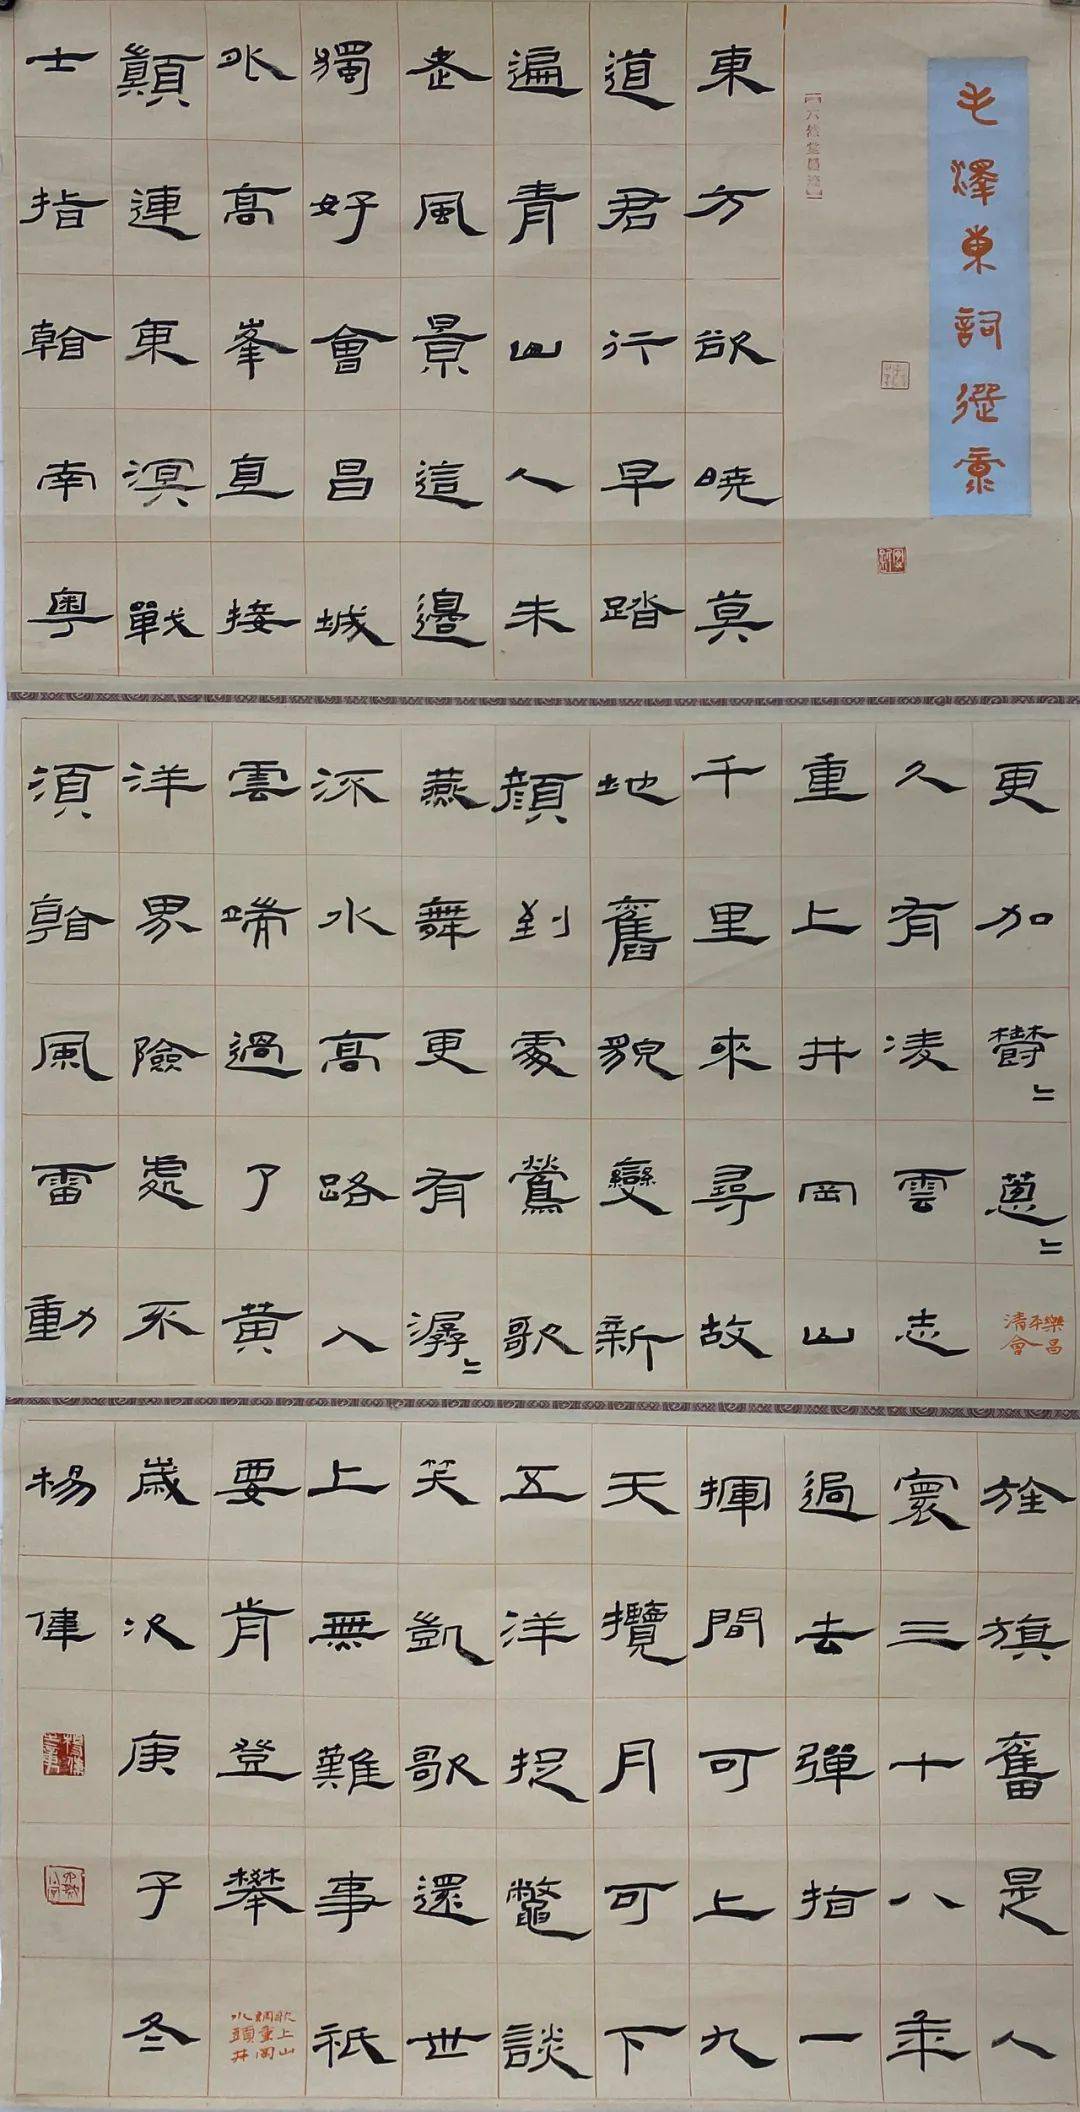 毛澤東詞選
東方欲曉莫
道君行早踏
遍青山人未
老風景這邊
獨好會昌城
外高峯直接
顛連東溟戰
士指看南粵
更加鬱〻蔥〻
清平樂
會昌
久有凌雲志
重上井岡山
千里來尋故
地舊貌變新
顏到處鶯歌
燕舞更有潺〻
流水高路入
雲端過了黃
洋界險處不
須看風雷動
旌旗奮是人
寰三十八年
過去彈指一
揮間可上九
天攬月可下
五洋捉鱉談
笑凱歌還世
上無難事祇
要肯登攀
水調歌頭
重上井岡山
歲次庚子冬
楊偉